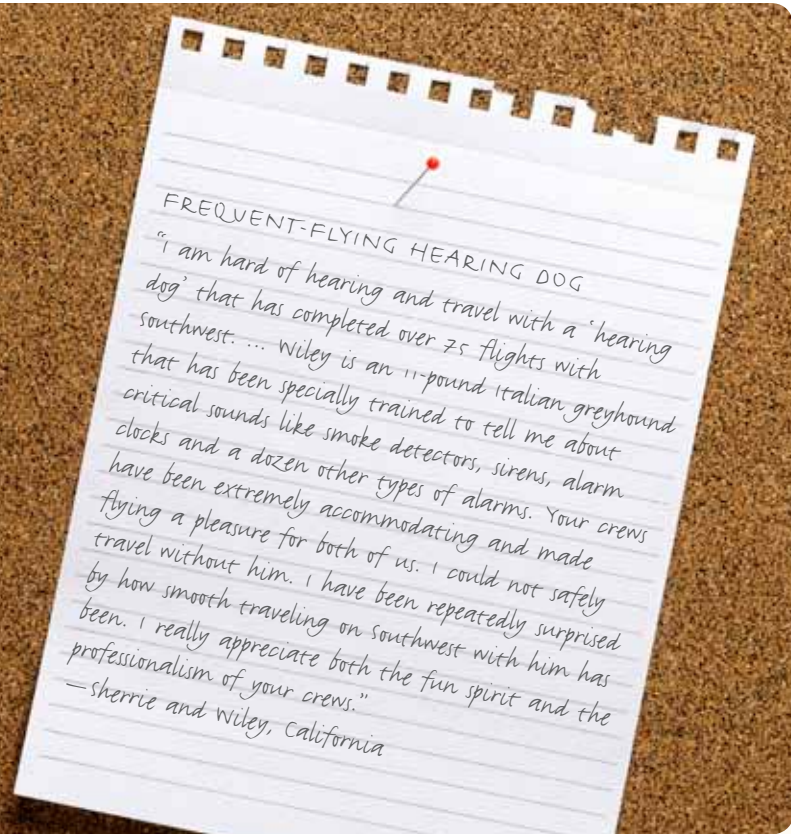 FREQUENT-FLYING HEARING DOG
"I am hard of hearing and travel with a 'hearing
dog' that has completed over 75 flights with
Southwest. ... Wiley is an 11-pound Italian greyhound
that has been specially trained to tell me about
critical sounds like smoke detectors, sirens, alarm
clocks and a dozen other types of alarms. Your crews
have been extremely accommodating and made
flying a pleasure for both of us. I could not safely
travel without him. I have been repeatedly surprised
by how smooth traveling on Southwest with him has
been. I really appreciate both the fun spirit and the
professionalism of your crews."
—Sherrie and Wiley, California